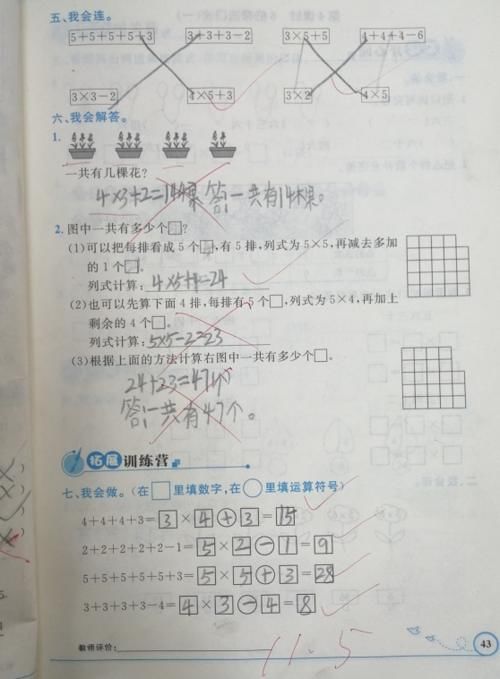 五、我会连。
5+5+5+5+3 3+3+3-2 3×5+5 4+4+4-6
3×3-2 4×5+3 3×2 4×5
六、我会解答。
1.
一共有几棵花?
4×3+2=14棵 答:一共有14棵。
2. 图中一共有多少个□?
(1)可以把每排看成5个□,有5排,列式为5×5,再减去多加
的1个□。
列式计算: 4×5+4=24
(2)也可以先算下面4排,每排有5个□,列式为5×4,再加上
剩余的4个□。
列式计算: 5×5-2=23
(3)根据上面的方法计算右图中一共有多少个□。
24+23=47个
答:一共有47个。
拓展训练营
七、我会做。(在□里填数字,在○里填运算符号)
4+4+4+3=3×4+3=15
2+2+2+2+2-1=5×2-1=9
5+5+5+5+5+3=5×5+3=28
3+3+3+3-4=4×3-4=8
教师评价:
11.5
43